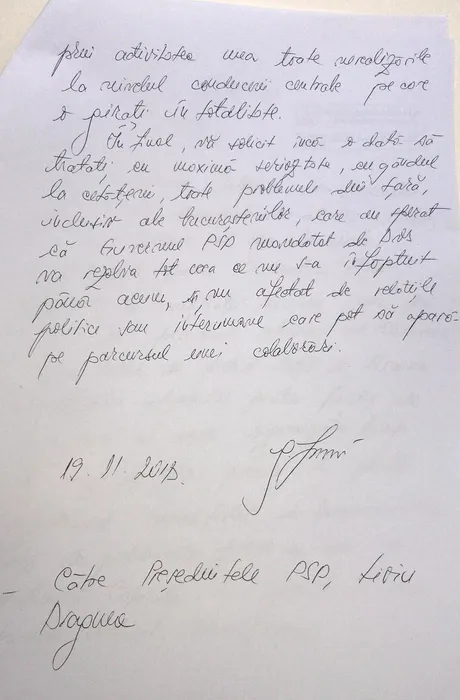 prin activitatea mea toate nerealizările
la nivelul conducerii centrale pe care
o girați în totalitate.
În final, vă solicit încă o dată să
tratați cu maximă seriozitate, cu gândul
la cetățeni, toate problemele din țară,
inclusiv ale bucureștenilor, care au sperat
că Guvernul PSD mandatat de Dvs
va rezolva tot ceea ce nu s-a înfăptuit
până acum, și nu afectat de relațiile
politice sau interumane care pot să apară
pe parcursul unei colaborări.
19.11.2018.
Către Președintele PSD, Liviu
Dragnea